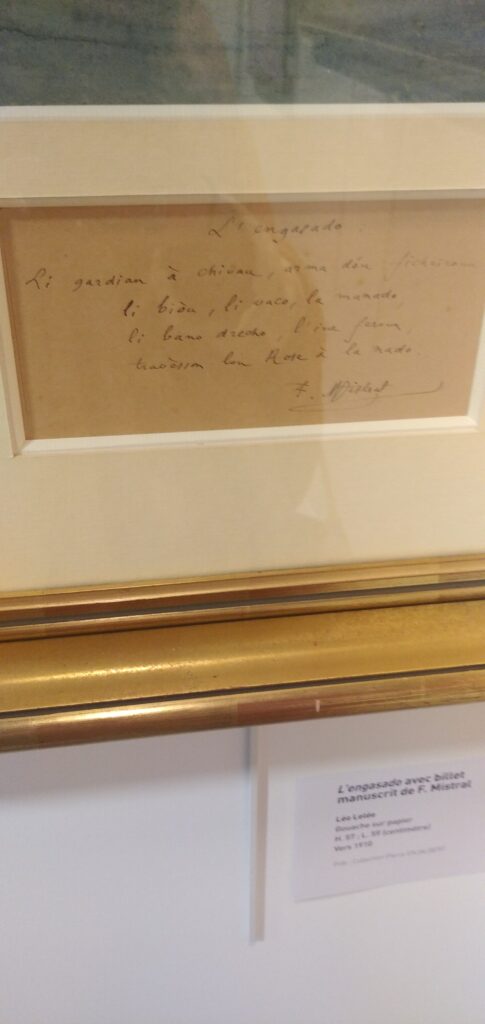 L'engasado.
Li gardian à chivau, arma dóu ficheiroun
li biòu, li vaco, la manado,
li bano drecho, l'iue feroun,
travèsson lou Rose à la nado.
F. Mistral
L'engasado avec billet
manuscrit de F. Mistral
Léo Lelée
Gouache sur papier
H. 57 ; L. 59 (centimètre)
Vers 1910
Collection Pierre